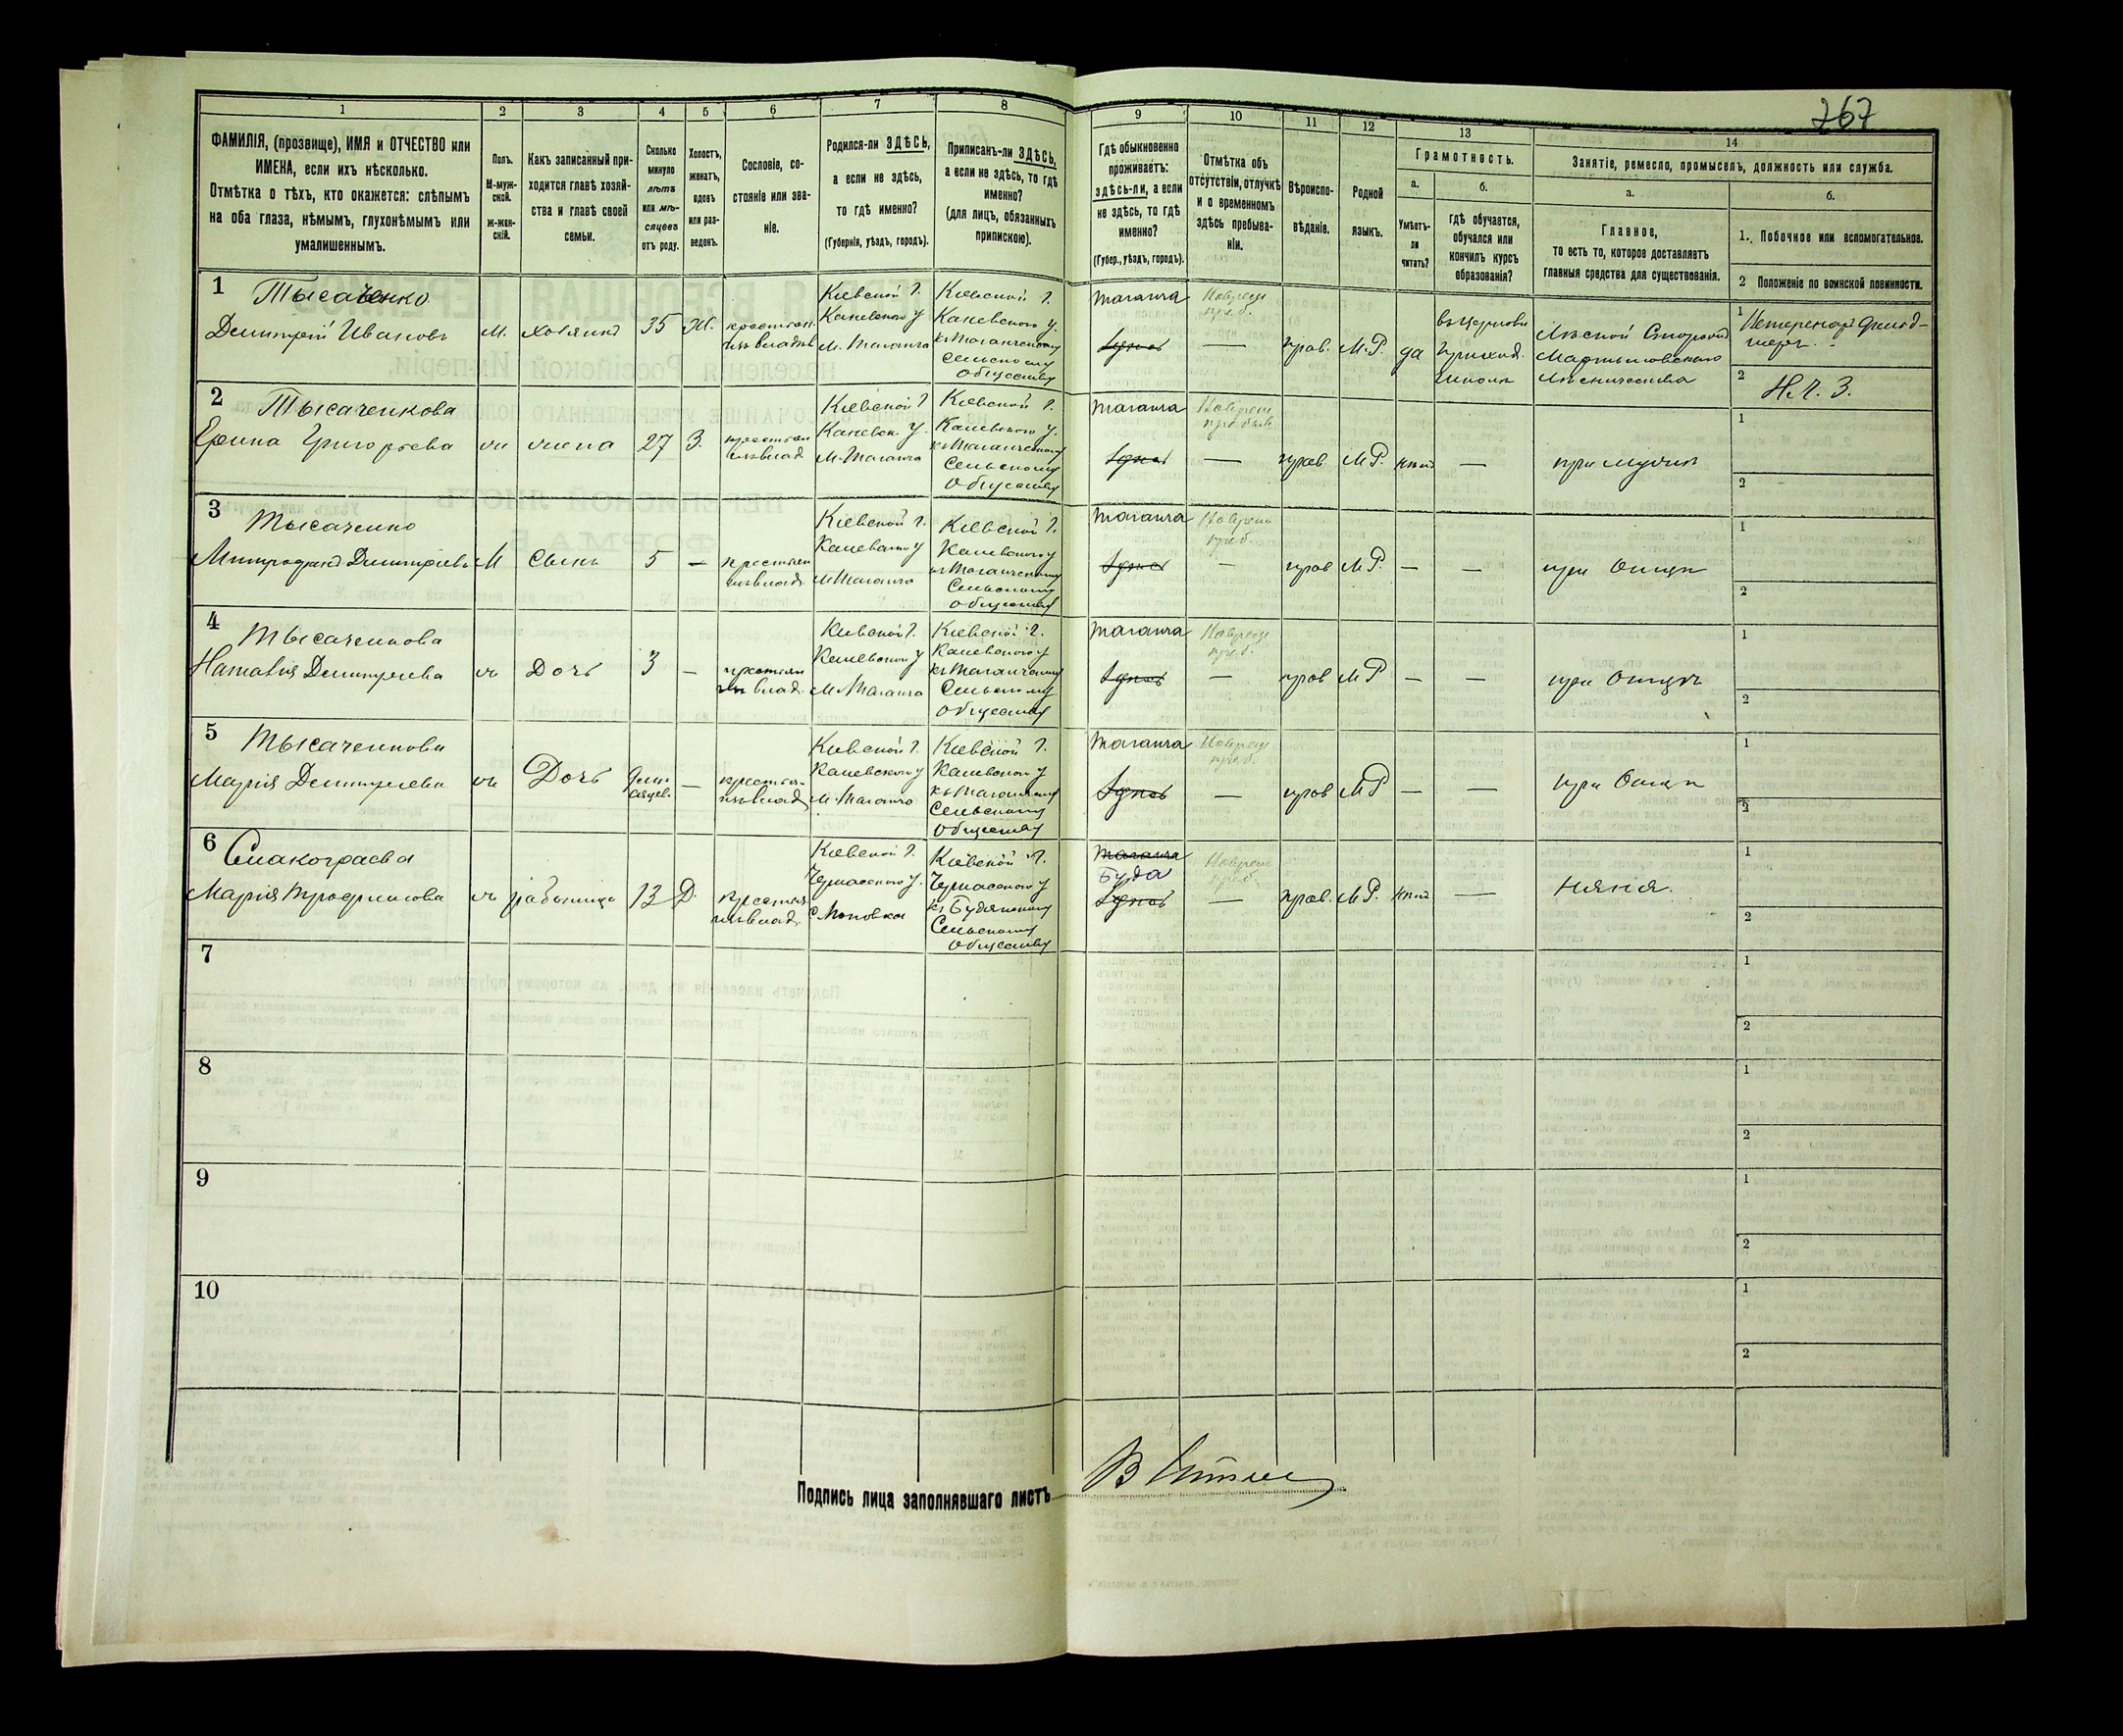 267
1 2 3 4 5 6 7 8 9 10 11 12 13 14
ФАМИЛІЯ, (прозвище), ИМЯ и ОТЧЕСТВО или
ИМЕНА, если ихъ нѣсколько.
Отмѣтка о тѣхъ, кто окажется: слѣпымъ
на оба глаза, нѣмымъ, глухонѣмымъ или
умалишеннымъ.
Полъ.
М-муж-
ской.
ж-жен-
скій.
Какъ записанный при-
ходится главѣ хозяй-
ства и главѣ своей
семьи.
Сколько
минуло
лѣтъ
или мѣ-
сяцевъ
отъ роду.
Холостъ,
женатъ,
вдовъ
или раз-
веденъ.
Сословіе, со-
стояніе или зва-
ніе.
Родился-ли ЗДѢСЬ,
а если не здѣсь,
то гдѣ именно?
(Губернія, уѣздъ, городъ).
Приписанъ-ли ЗДѢСЬ,
а если не здѣсь, то гдѣ
именно?
(для лицъ, обязанныхъ
припискою).
Гдѣ обыкновенно
проживаетъ:
здѣсь-ли, а если
не здѣсь, то гдѣ
именно?
(Губер., уѣздъ, городъ).
Отмѣтка объ
отсутствіи, отлучкѣ
и о временномъ
здѣсь пребыва-
ніи.
Вѣроиспо-
вѣданіе.
Родной
языкъ.
Грамотность.
а.
Умѣетъ-
ли
читать?
б.
гдѣ обучается,
обучался или
кончилъ курсъ
образованія?
Занятіе, ремесло, промыселъ, должность или служба.
а.
Главное,
то есть то, которое доставляетъ
главныя средства для существованія.
б.
1. Побочное или вспомогательное.
2 Положеніе по воинской повинности.
1
Тысаченко
Дмитрій Ивановъ
М.
хозяинъ
35
Ж.
крестьян.
изъ владѣ
Кіевской г.
Каневского у
М. Таганча
Кіевской г.
Каневского у.
къ Таганчскому
Сельскому
Обществу
Таганча
—
прав.
М.Р.
да
въ Церковн
приход.
школѣ
Лѣсной Сторожъ
Мартыновского
Лѣсничества
1
Ветеренарн фельд-
шеръ.
2
Н.Ч. 3.
2
Тысаченкова
Ирина Григорьева
ж
жена
27
З.
крестьян
изъ влад
Кіевской г
Каневск. у.
М. Таганча
Кіевской г.
Каневского у.
къ Таганчскому
Сельскому
Обществу
Таганча
—
прав
М.Р.
—
при мужѣ
1
2
3
Тысаченко
Митрофанъ Дмитріевъ
М
Сынъ
5
—
крестьян
изъ влад.
Кіевской г.
Каневского у
М Таганча
Кіевской г.
Каневского у
къ Таганчскому
Сельскому
Обществу
Таганча
—
прав
М.Р.
—
—
при Отцѣ
1
2
4
Тысаченкова
Наталія Дмитріева
ж
Дочь
3
—
крестьян
изъ влад.
Кіевской г.
Каневского у
М. Таганча
Кіевской г.
Каневского у
къ Таганчскому
Сельскому
Обществу
Таганча
—
прав
М.Р
—
—
при Отцѣ
1
2
5
Тысаченкова
Марія Дмитріева
ж
Дочь
9 мѣ-
сяцев.
—
крестьян
изъ влад.
Кіевской г.
Каневского у
М. Таганча
Кіевской г.
Каневского у
къ Таганчскому
Сельскому
Обществу
Таганча
—
прав
М.Р
—
—
при Отцѣ
1
2
6
Марія Трофимова
ж
работница
13
Д.
крестьян
изъ влад.
Кіевской г.
Черкасского у.
Кіевской г.
Черкасского у
къ Будянскому
Сельскому
Обществу
Таганча
Буда
—
прав.
М.Р.
—
няня.
1
2
7
1
2
8
1
2
9
1
2
10
1
2
Подпись лица заполнявшаго листъ